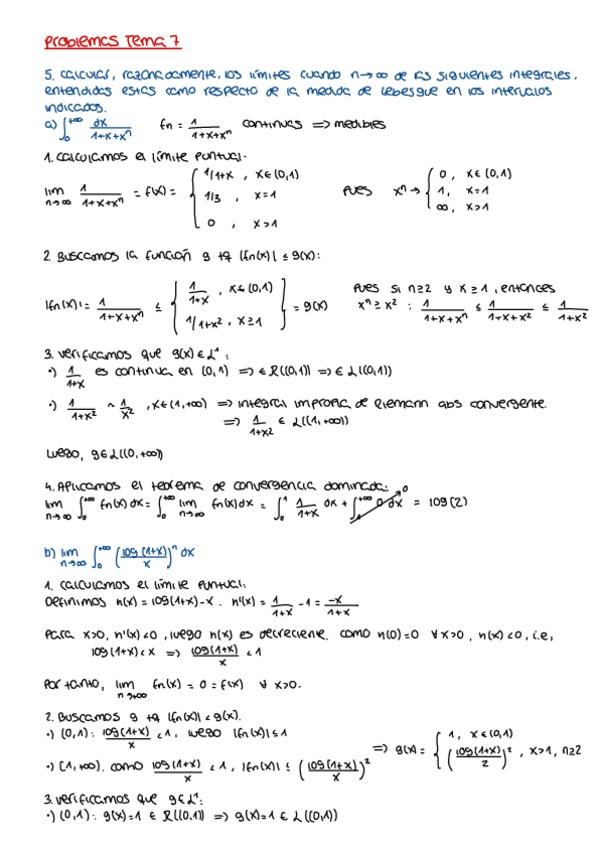 Problemas Tema 7
5. Calcular, razonadamente, los límites cuando n→∞ de las siguientes integrales,
entendidas estas como respecto de la medida de Lebesgue en los intervalos
indicados.
a) ∫₀^{+∞} dx/(1+x+xⁿ)   fn = 1/(1+x+xⁿ) continuas ⟹ medibles
1. Calculamos el límite puntual.
lim_{n→∞} 1/(1+x+xⁿ) = f(x) = { 1/1+x , x∈(0,1) ; 1/3 , x=1 ; 0 , x>1   pues xⁿ → { 0, x∈(0,1) ; 1, x=1 ; ∞, x>1
2. Buscamos la función g tq |fn(x)| ≤ g(x):
|fn(x)| = 1/(1+x+xⁿ) ≤ { 1/(1+x) , x∈(0,1) ; 1/1+x² , x≥1 } = g(x)   pues si n≥2 y x≥1, entonces
xⁿ ≥ x² : 1/(1+x+xⁿ) ≤ 1/(1+x+x²) ≤ 1/(1+x²)
3. Verificamos que g(x)∈L¹:
•) 1/(1+x) es continua en (0,1) ⟹ ∈ R((0,1)) ⟹ ∈ L((0,1))
•) 1/(1+x²) ~ 1/x² , x∈(1,+∞) ⟹ integral impropia de Riemann abs convergente.
⟹ 1/(1+x²) ∈ L((1,+∞))
Luego, g∈L((0,+∞))
4. Aplicamos el teorema de convergencia dominada:
lim_{n→∞} ∫₀^{+∞} fn(x)dx = ∫₀^{+∞} lim_{n→∞} fn(x)dx = ∫₀¹ 1/(1+x) dx + ∫^{+∞} 0 dx → 0 = log(2)
b) lim_{n→∞} ∫₀^{+∞} (log(1+x)/x)ⁿ dx
1. Calculamos el límite puntual:
Definimos h(x) = log(1+x)-x . h'(x) = 1/(1+x) - 1 = -x/(1+x)
Para x>0, h'(x)<0, luego h(x) es decreciente. Como h(0)=0 ∀x>0, h(x)<0, i.e,
log(1+x)<x ⟹ log(1+x)/x < 1
Por tanto, lim_{n→+∞} fn(x) = 0 = f(x) ∀ x>0.
2. Buscamos g tq |fn(x)| < g(x).
•) (0,1): log(1+x)/x < 1, luego |fn(x)| ≤ 1
•) [1,∞). Como log(1+x)/x < 1, |fn(x)| ≤ (log(1+x)/x)²   ⟹ g(x) = { 1, x∈(0,1) ; (log(1+x)/2)², x>1, n≥2
3. Verificamos que g∈L¹:
•) (0,1): g(x)=1 ∈ R((0,1)) ⟹ g(x)=1 ∈ L((0,1))